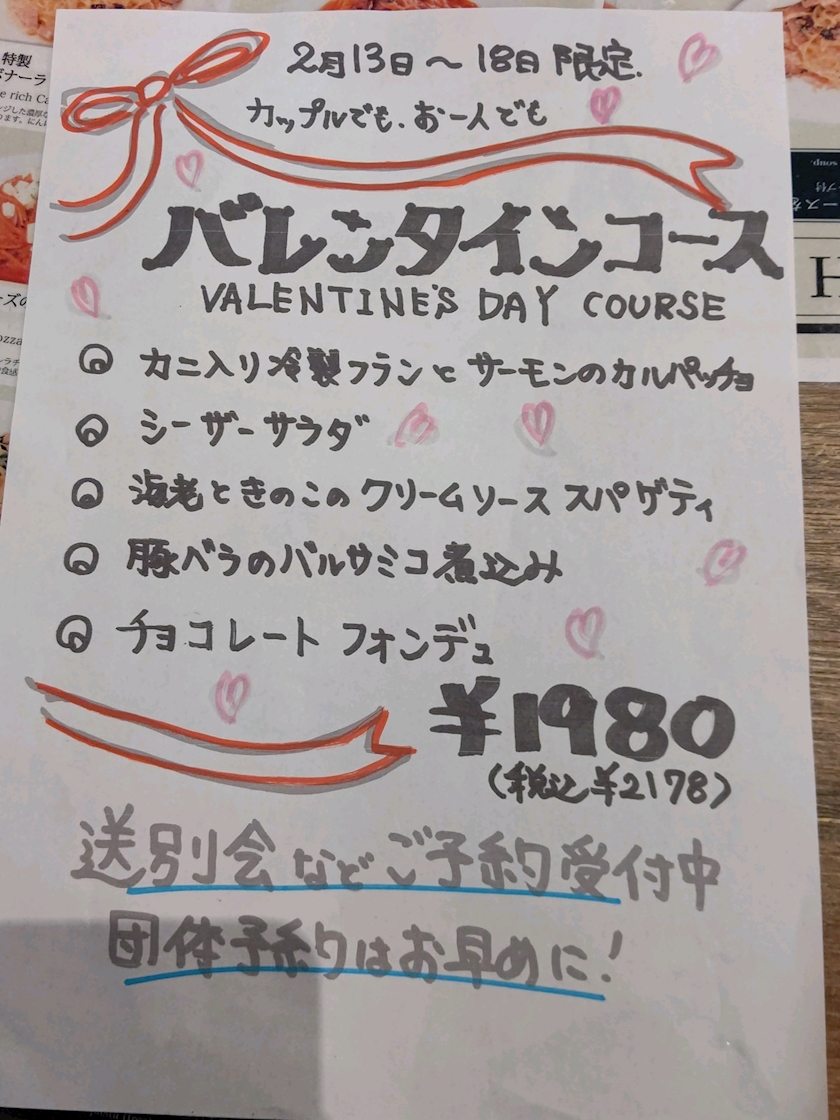 特製
ボナーラ
e rich Ca
2月13日～18日 限定.
カップルでも、お一人でも
バレンタインコース
VALENTINE'S DAY COURSE
カニ入り冷製フランと サーモンのカルパッチョ
シーザーサラダ
海老ときのこのクリームソース スパゲティ
豚バラのバルサミコ煮込み
チョコレート フォンデュ
¥1980
(税込¥2178)
送別会などご予約受付中
団体予約はお早めに!
ozza
soup.
H